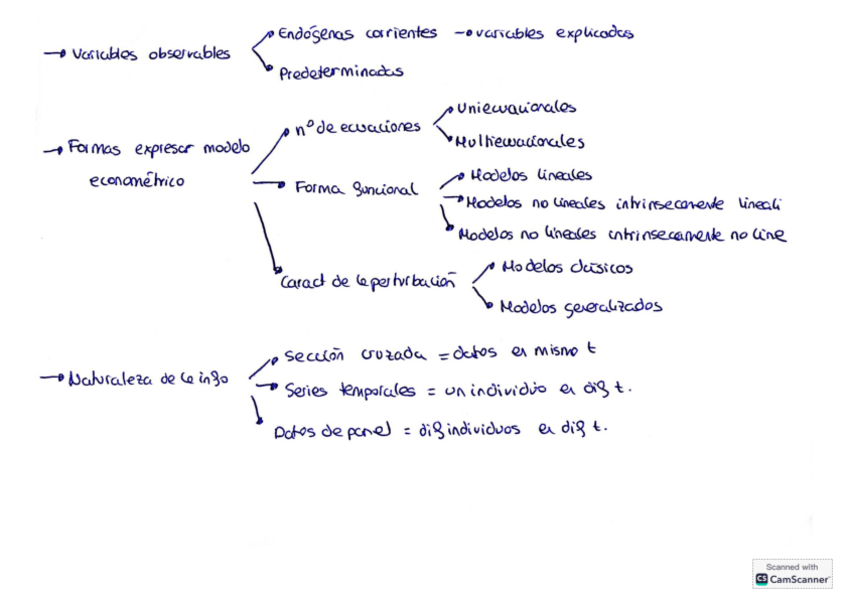 → Variables observables
Endógenas corrientes → variables explicadas
Predeterminadas
→ Formas expresar modelo econométrico
nº de ecuaciones
Uniecuacionales
Multiecuacionales
Forma funcional
Modelos lineales
Modelos no lineales intrínsecamente lineali
Modelos no lineales intrinsecamente no line
Caract de la perturbación
Modelos clásicos
Modelos generalizados
→ Naturaleza de la info
Sección cruzada = datos en mismo t
Series temporales = un individuo en dif t.
Datos de panel = dif individuos en dif t.
Scanned with
CS CamScanner